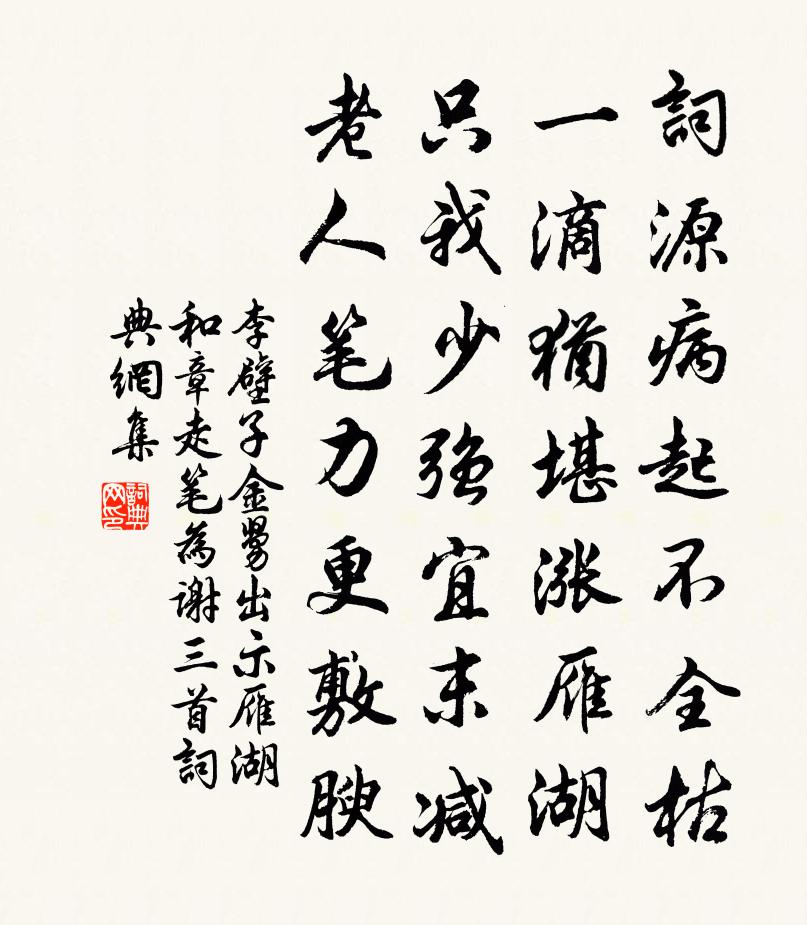 詞源病起不全枯
一滴猶堪漲雁湖
只我少強宜未減
老人笔力更敷腴
李壁子金嘗出示雁湖
和章走笔為谢三首詞
典網集
詞典
网印